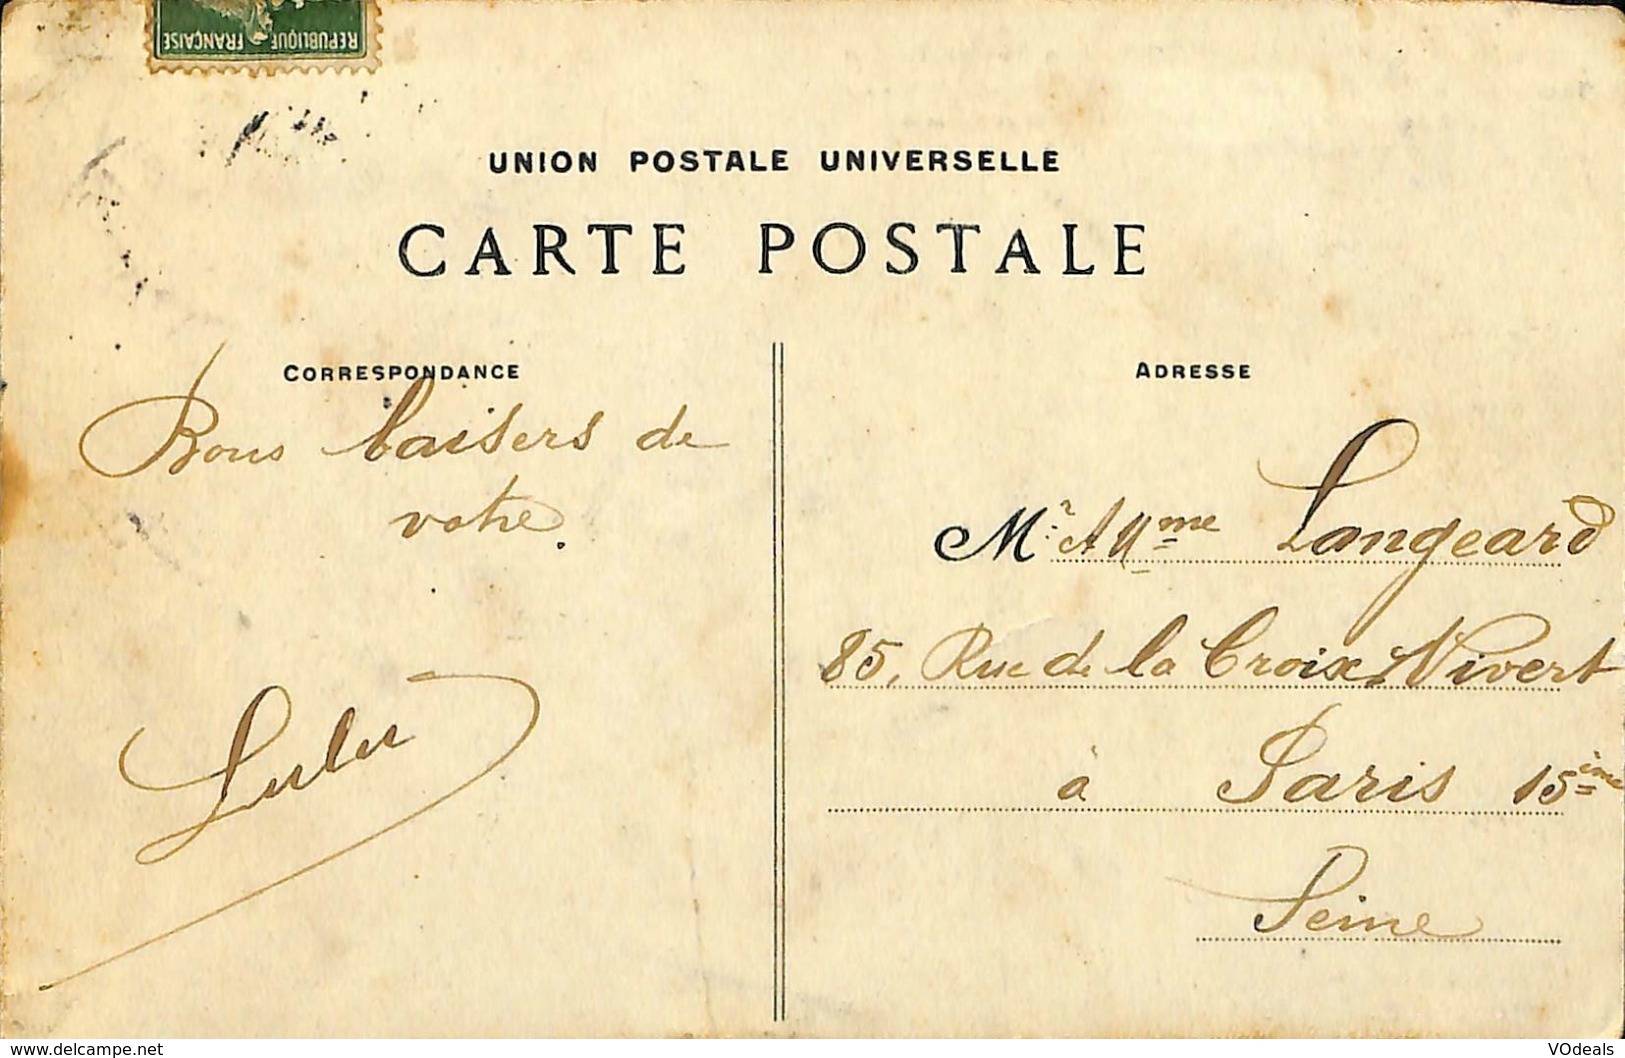 REPUBLIQUE FRANÇAISE
UNION POSTALE UNIVERSELLE
CARTE POSTALE
CORRESPONDANCE
Bons baisers de
votre.
Lulu
ADRESSE
Mr et Mme Langeard
85, Rue de la Croix Nivert
à Paris 15ème
Seine
www.delcampe.net
VOdeals